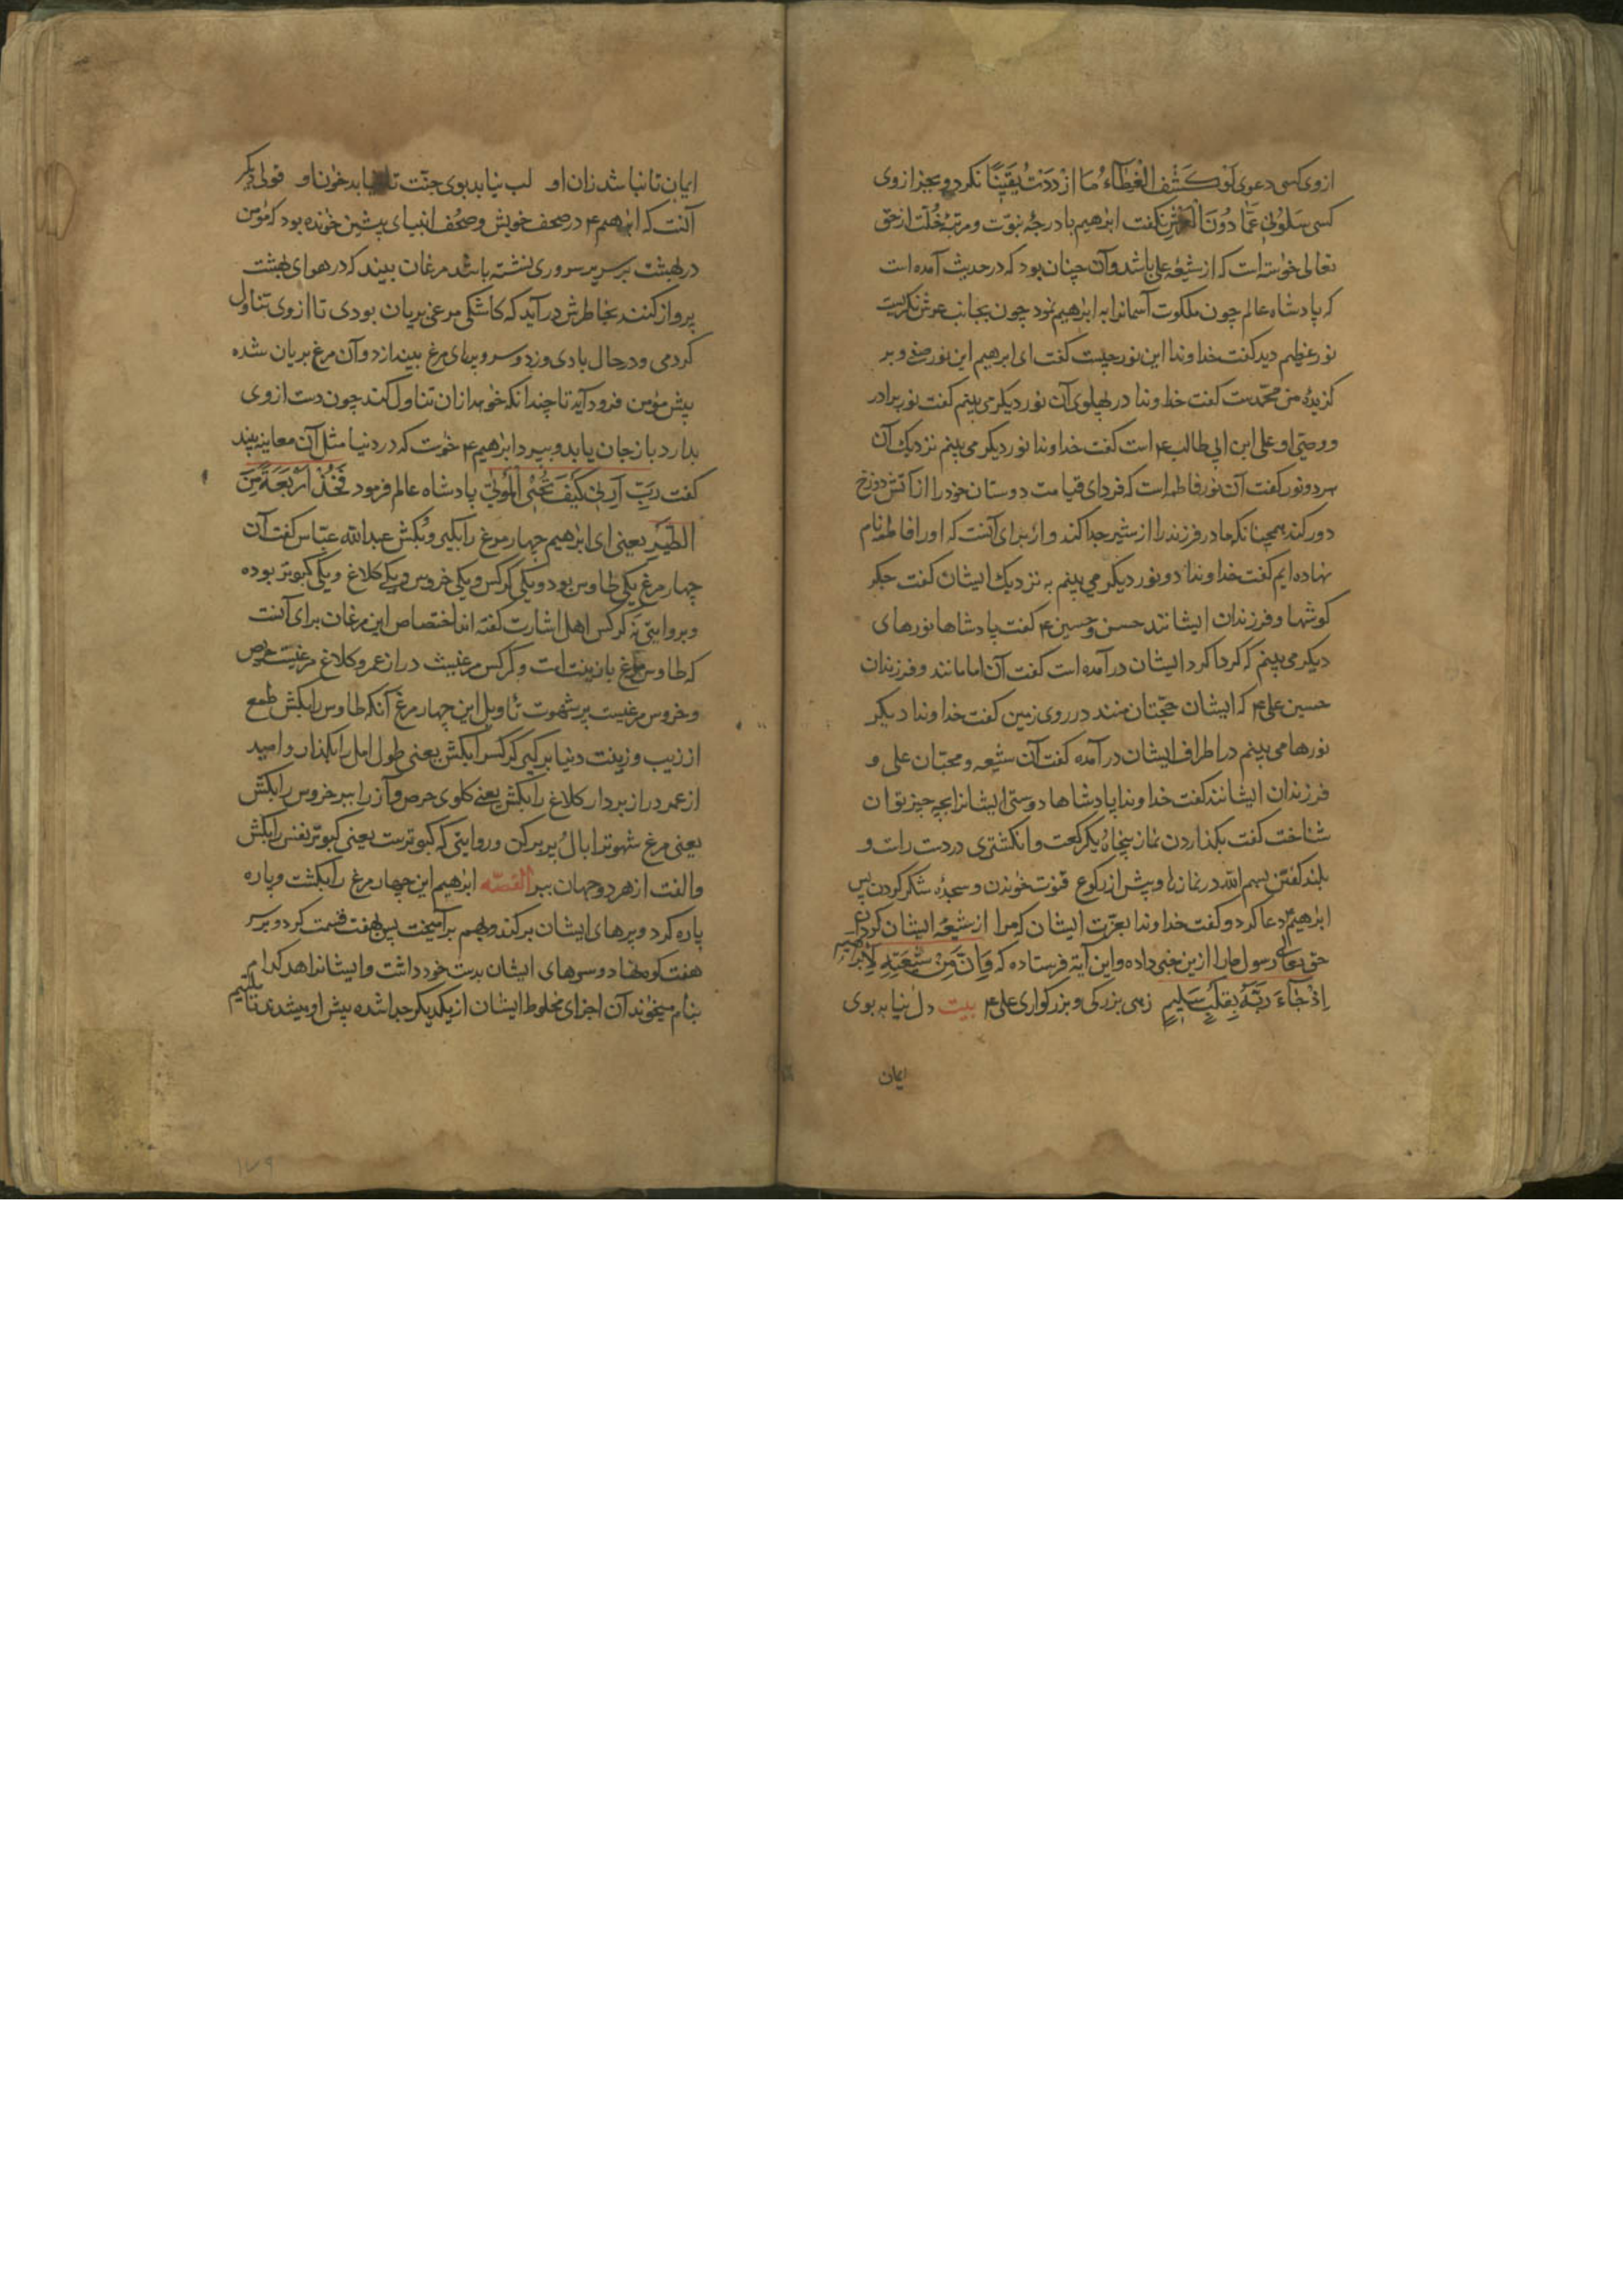 ازوی کسی دعوی لَوْ کَشَفَ الْغِطَآءُ مَا ازْدَدَتُ یَقِیْنًا نکرد و بجز ازوی
کسی سَلُونِی عَمَّا دُونَ الْعَرْشِ نکفت ابرٰهیم با درجهٔ نبوّت و مرتبهٔ خُلّت از حق
تعالی خواسته است که از شیعهٔ علی باشد و آن چنان بود که در حدیث آمده است
که پادشاه عالم چون ملکوت آسمانرا به ابرٰهیم نمود چون بجانب عرش نکریست
نور عظیم دید کفت خداوندا این نور چیست کفت ای ابرهیم این نور صفی و بر
کزیدهٔ من محمّدست کفت خداوندا در پهلوی آن نور دیکر می بینم کفت نور برادر
و وصیّ او علی ابن ابی طالب ۴ است کفت خداوندا نور دیکر می بینم نزدیک آن
هر دو نور کفت آن نور فاطمه است که فردای قیامت دوستان خود را از آتش دوزخ
دور کند همچنانکه مادر فرزند را از شیر جدا کند و از برای آنست که او را فاطمه نام
نهاده ایم کفت خداوندا دو نور دیکر می بینم به نزدیک ایشان کفت جکر
کوشها و فرزندان ایشانند حسن و حسین ۴ کفت پادشاها نورهای
دیکر می بینم که کرداکرد ایشان در آمده است کفت آن امامانند و فرزندان
حسین علی ۴ که ایشان حجّتان منند در روی زمین کفت خداوندا دیکر
نورها می بینم در اطراف ایشان در آمده کفت آن شیعه و محبّان علی و
فرزندان ایشانند کفت خداوندا پادشاها دوستی ایشانرا بچه چیز توان
شناخت کفت بکذاردن نماز پنجاه و یکرکعت و انکشتری در دست راست و
بلند کفتن بسم الله در نمازها و پیش از رکوع قنوت خواندن و سجدهٔ شکر کردن پس
ابرٰهیم دعا کرد و کفت خداوندا بعزّت ایشان که مرا از شیعهٔ ایشان کردان
حق تعالی رسول ما را ازین خبر داده و این آیه فرستاده که وَاِنَّ مِنْ شِیْعَتِهِ لَاِبْرٰهِیْمَ
اِذْ جَآءَ رَبَّهُ بِقَلْبٍ سَلِیْمٍ زهی بزرکی و بزرکواری علی ۴ بیت دل نیابد بوی
ایمان
ایمان تا نباشد زان او لب نیابد بوی جنّت تا نیابد خوان او قولی دیکر
آنست که ابرٰهیم ۴ در صحف خویش و صُحُف انبیای پیشین خوانده بود که مؤمن
در بهشت بر سریر سروری نشسته باشد مرغان بیند که در هوای بهشت
پرواز کنند بخاطرش در آید که کاشکی مرغی بریان بودی تا ازوی تناول
کردمی و در حال بادی وزد و سر و پرهای مرغ بیندازد و آن مرغ بریان شده
پیش مؤمن فرود آید تا چندانکه خواهد از آن تناول کند چون دست ازوی
بدارد باز جان یابد و بپرد ابرٰهیم ۴ خواست که در دنیا مثل آن معاینه بیند
کفت رَبِّ اَرِنِی کَیْفَ تُحْیِی الْمَوْتٰی پادشاه عالم فرمود فَخُذْ اَرْبَعَةً مِنَ
الطَّیْرِ یعنی ای ابرٰهیم چهار مرغ را بگیر و بُکش عبدالله عبّاس کفت آن
چهار مرغ یکی طاوس بود و یکی کرکس و یکی خروس و یکی کلاغ و یکی کبوتر بوده
و بروایتی نه کرکس اهل اشارت کفته اند اختصاص این مرغان برای آنست
که طاوس مرغ با زینت است و کرکس مرغیست دراز عمر و کلاغ مرغیست حریص
و خروس مرغیست پر شهوت تاویل این چهار مرغ آنکه طاوس را بکش طمع
از زیب و زینت دنیا برکیر کرکس را بکش یعنی طول امل را بکذار و امید
از عمر دراز بردار کلاغ را بکش یعنی کلوی حرص و آز را ببر خروس را بکش
یعنی مرغ شهوترا بال و پر برکن و روایتی که کبوترست یعنی کبوتر نفس را بکش
و الفت از هر دو جهان ببر القصّه ابرٰهیم این چهار مرغ را بکشت و پاره
پاره کرد و پرهای ایشان برکند و بهم برآمیخت پس بهفت قسمت کرد و بر سر
هفت کوه نهاد و سرهای ایشان بدست خود داشت و ایشانرا هر کدام
بنام میخواند آن اجزای مخلوط ایشان از یکدیکر جدا شده پیش او میشدی
۱۷۹